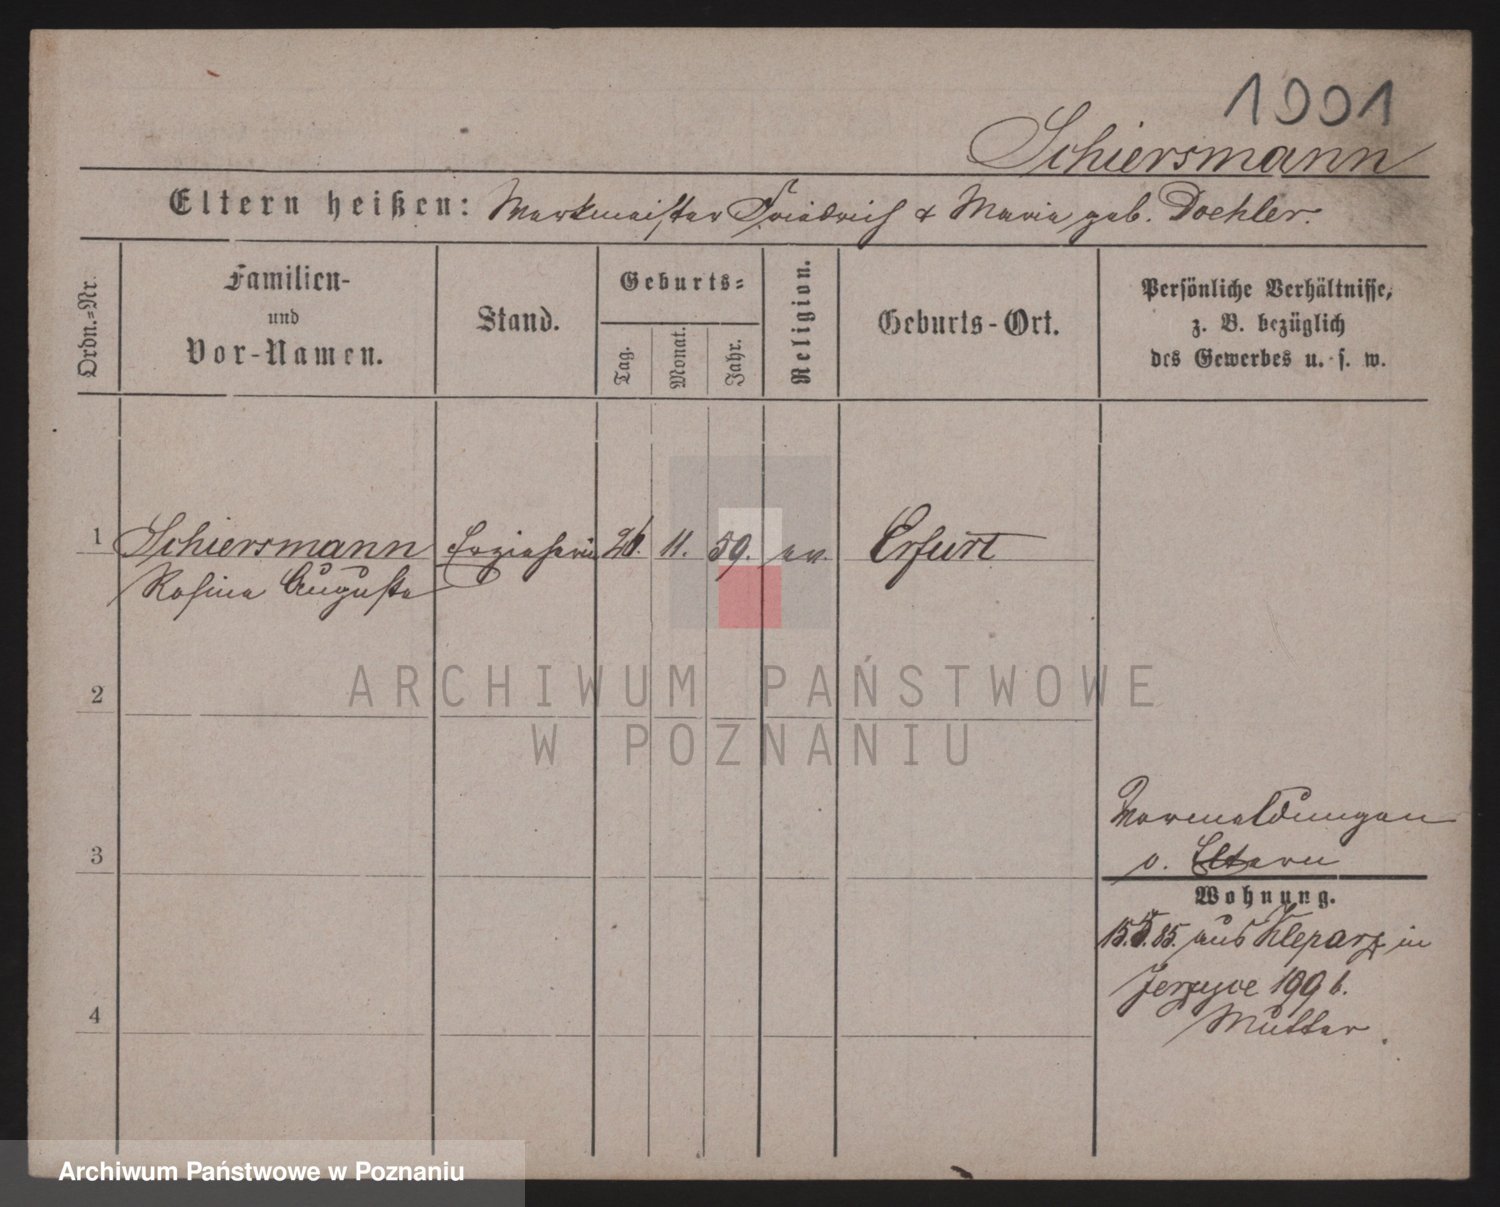 1001
Schiersmann
Eltern heißen: Werkmeister Friedrich & Maria geb. Doehler.
Ordn.=Nr.
Familien-
und
Vor-Namen.
Stand.
Geburts=
Tag.
Monat.
Jahr.
Religion.
Geburts-Ort.
Persönliche Verhältnisse,
z. B. bezüglich
des Gewerbes u. s. w.
1 Schiersmann Erzieherin 26. 11. 59. ev. Erfurt
Rosina Auguste
ARCHIWUM PAŃSTWOWE
W POZNANIU
2
3
4
Vormeldungen
v. Eltern
Wohnung.
15.5.85. aus Kleparz in
Jerzyce 199 b.
Mutter.
Archiwum Państwowe w Poznaniu